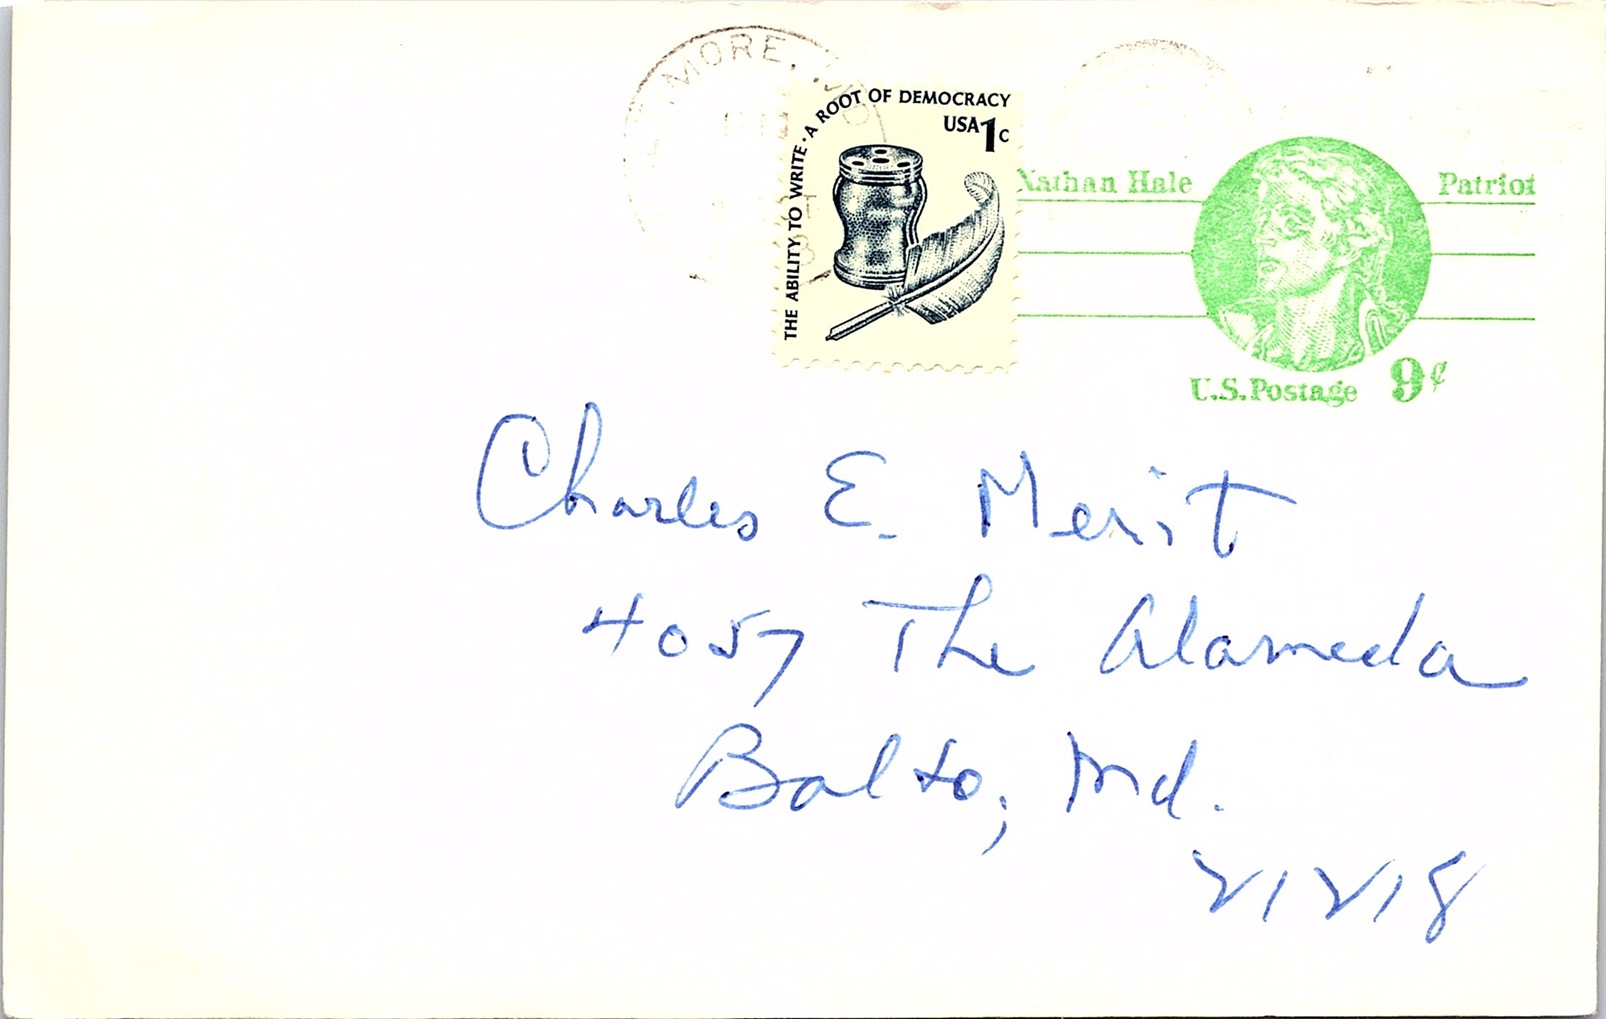 MORE,
THE ABILITY TO WRITE · A ROOT OF DEMOCRACY
USA 1c
Nathan Hale Patriot
U.S. Postage 9¢
Charles E. Merit
4057 The Alameda
Balto, Md.
21218